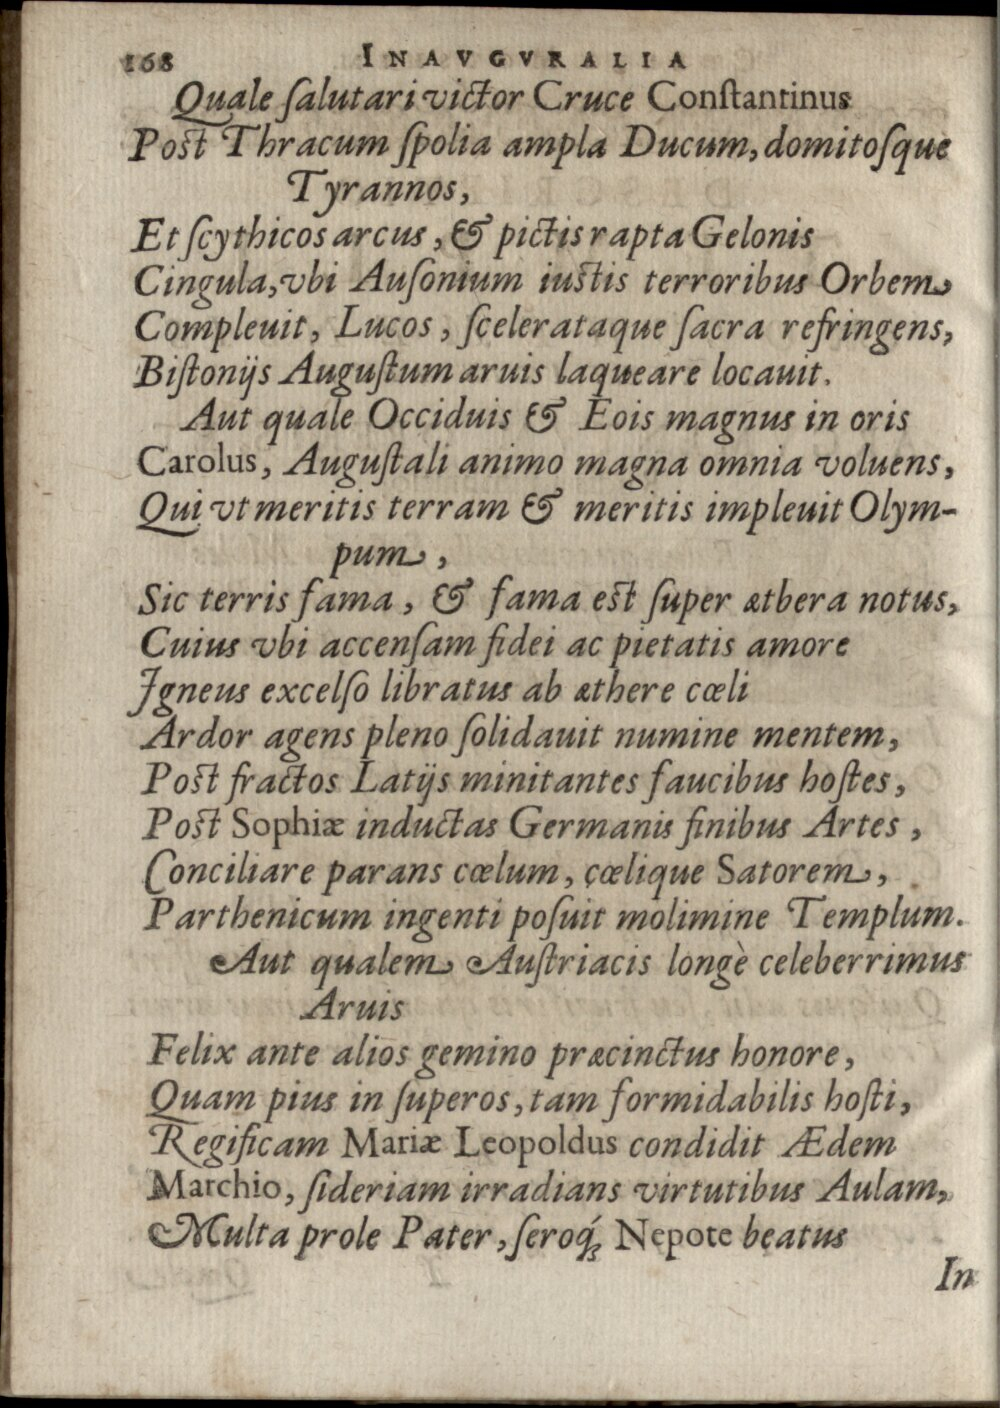 168 INAVGVRALIA
Quale ſalutari victor Cruce Conſtantinus
Poſt Thracum ſpolia ampla Ducum, domitoſque
Tyrannos,
Et ſcythicos arcus, & pictis rapta Gelonis
Cingula, vbi Auſonium iuſtis terroribus Orbem
Compleuit, Lucos, ſcelerataque ſacra refringens,
Biſtonijs Auguſtum aruis laqueare locauit.
Aut quale Occiduis & Eois magnus in oris
Carolus, Auguſtali animo magna omnia voluens,
Qui vt meritis terram & meritis impleuit Olym-
pum,
Sic terris fama, & fama eſt ſuper æthera notus,
Cuius vbi accenſam fidei ac pietatis amore
Igneus excelſo libratus ab æthere cœli
Ardor agens pleno ſolidauit numine mentem,
Poſt fractos Latijs minitantes faucibus hoſtes,
Poſt Sophiæ inductas Germanis finibus Artes,
Conciliare parans cœlum, cœlique Satorem,
Parthenicum ingenti poſuit molimine Templum.
Aut qualem Auſtriacis longè celeberrimus
Aruis
Felix ante alios gemino præcinctus honore,
Quam pius in ſuperos, tam formidabilis hoſti,
Regificam Mariæ Leopoldus condidit Ædem
Marchio, ſideriam irradians virtutibus Aulam,
Multa prole Pater, ſeroq́; Nepote beatus
In